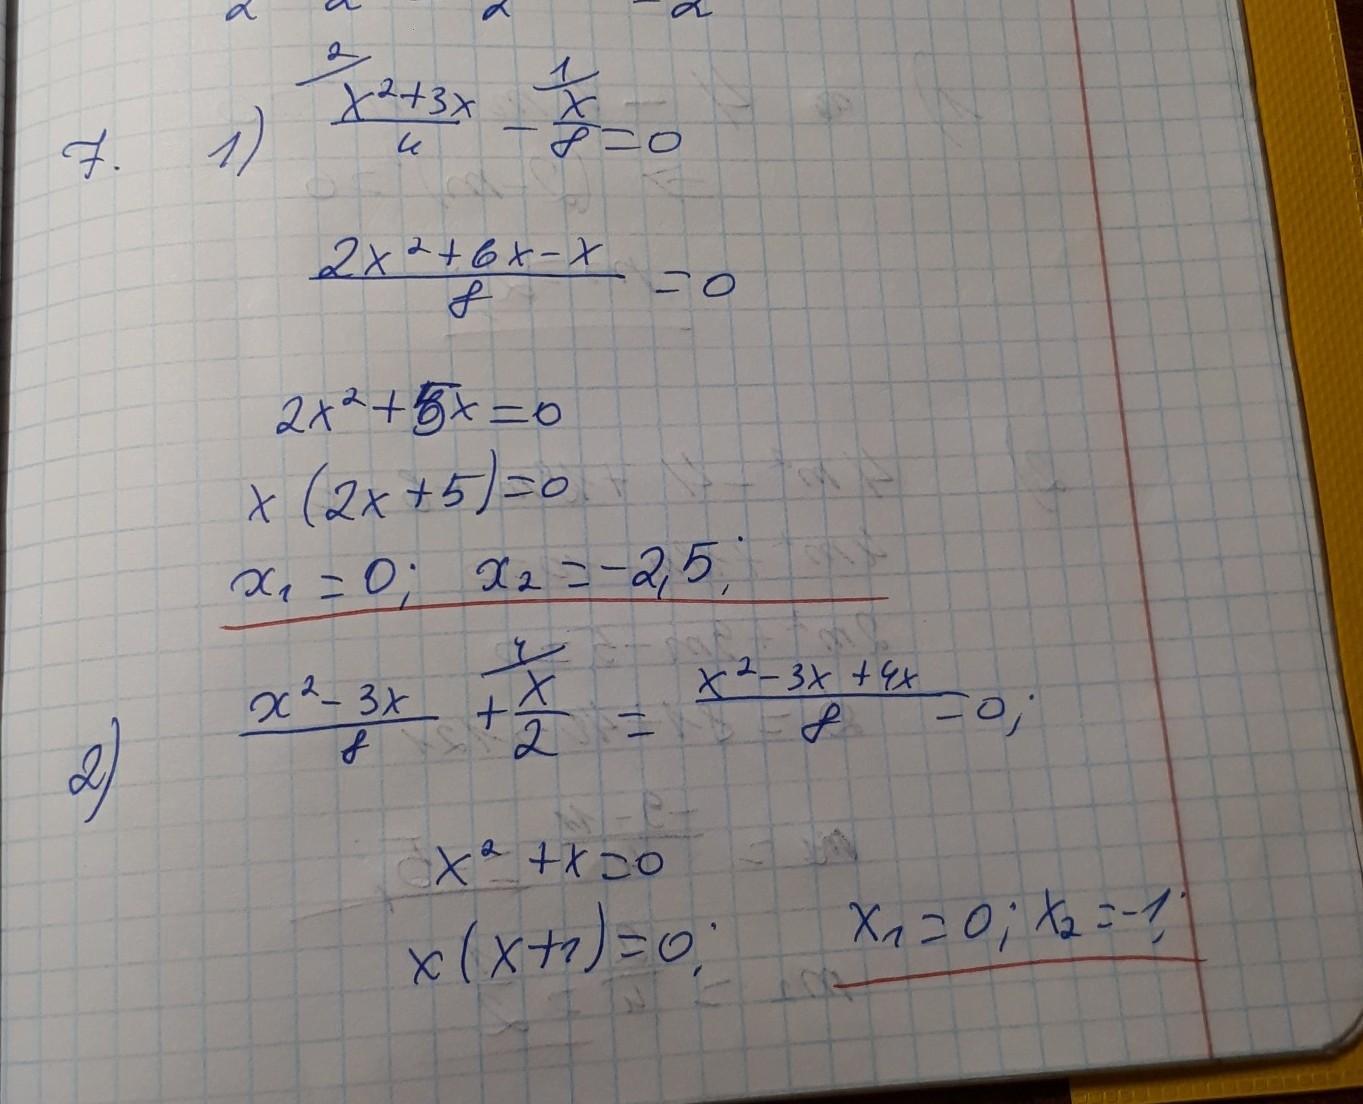 2 2 2 -2
7. 1) 2/ (x²+3x)/4 - 1/ x/8 = 0
(2x²+6x-x)/8 = 0
2x²+5x=0
x(2x+5)=0
x₁ = 0; x₂ = -2,5;
2) (x²-3x)/8 + 4/ x/2 = (x²-3x+4x)/8 = 0;
x² + x = 0
x(x+1)=0; x₁ = 0; x₂ = -1;